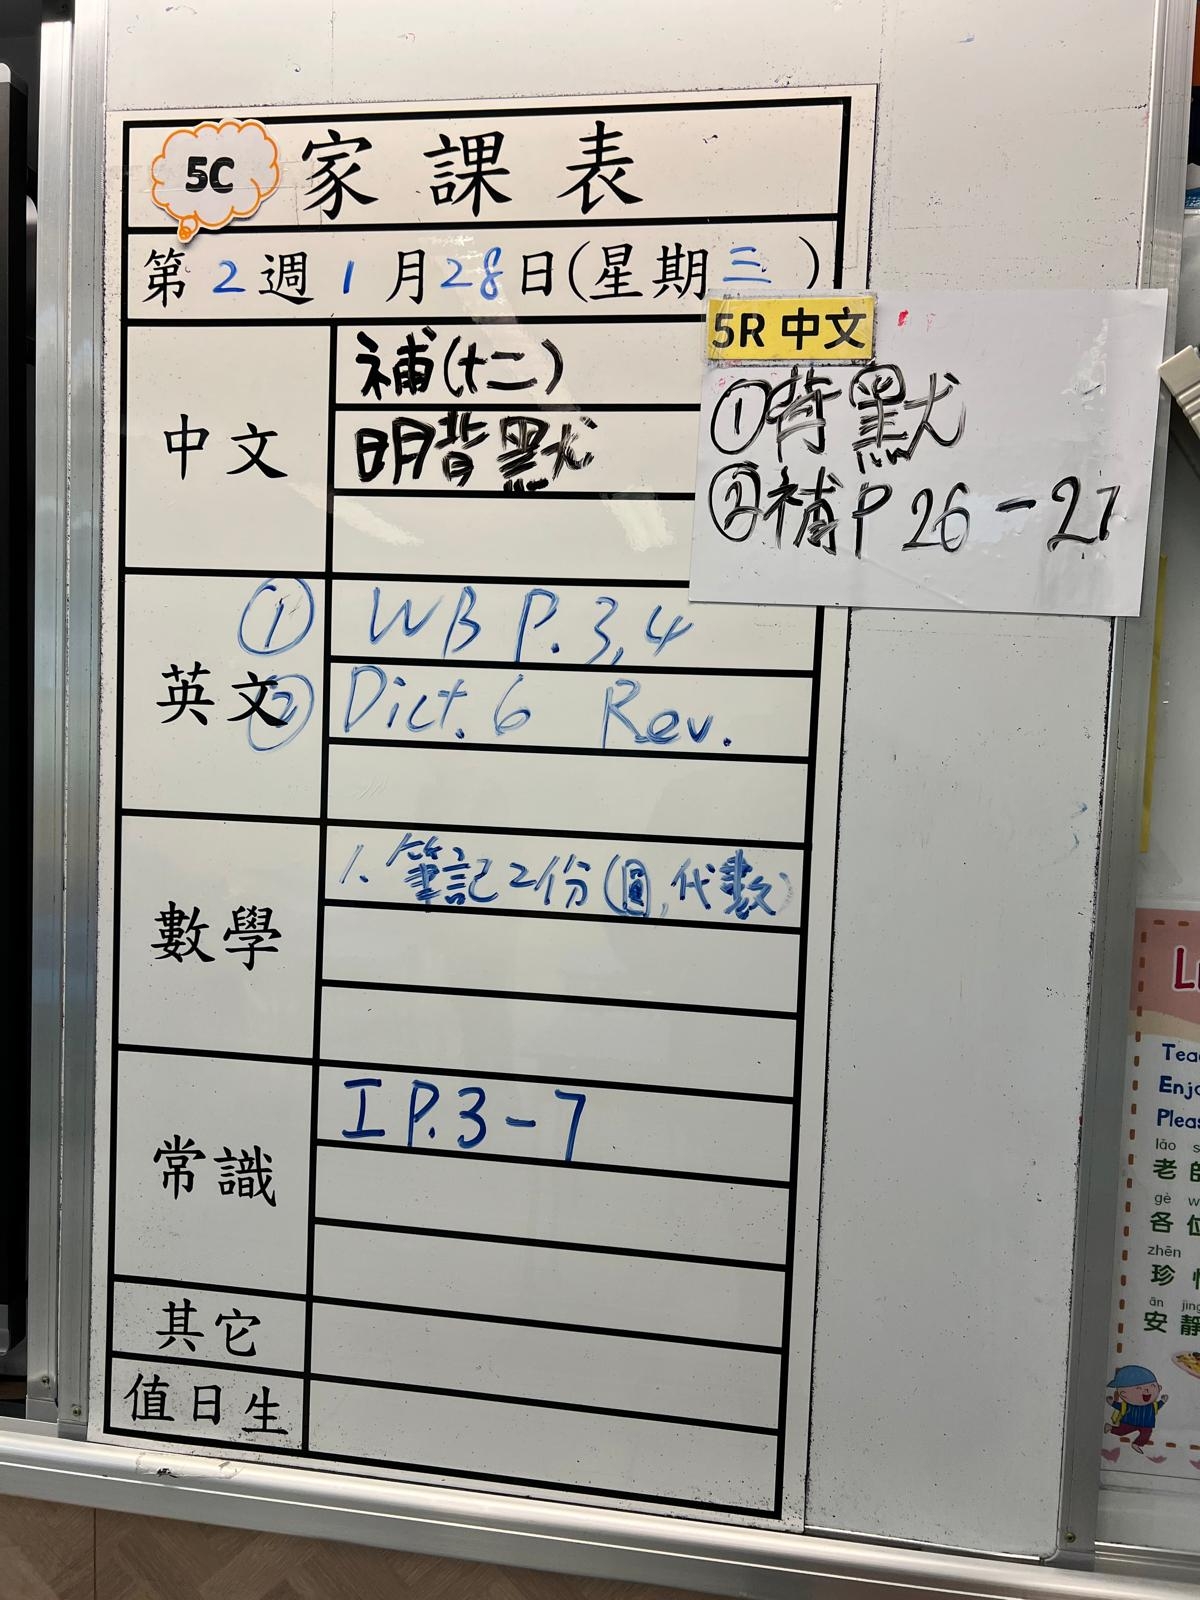 5C 家課表
第2週1月28日(星期三)
中文
補(十二)
明背默
5R 中文
①背默
②補P 26-27
英文
① WB P.3,4
② Dict. 6 Rev.
數學
1. 筆記2份(圓,代數)
常識
I P.3-7
其它
值日生
Enjo
lāo s
老師
gè w
各位
zhēn
珍
ān jìng
安靜